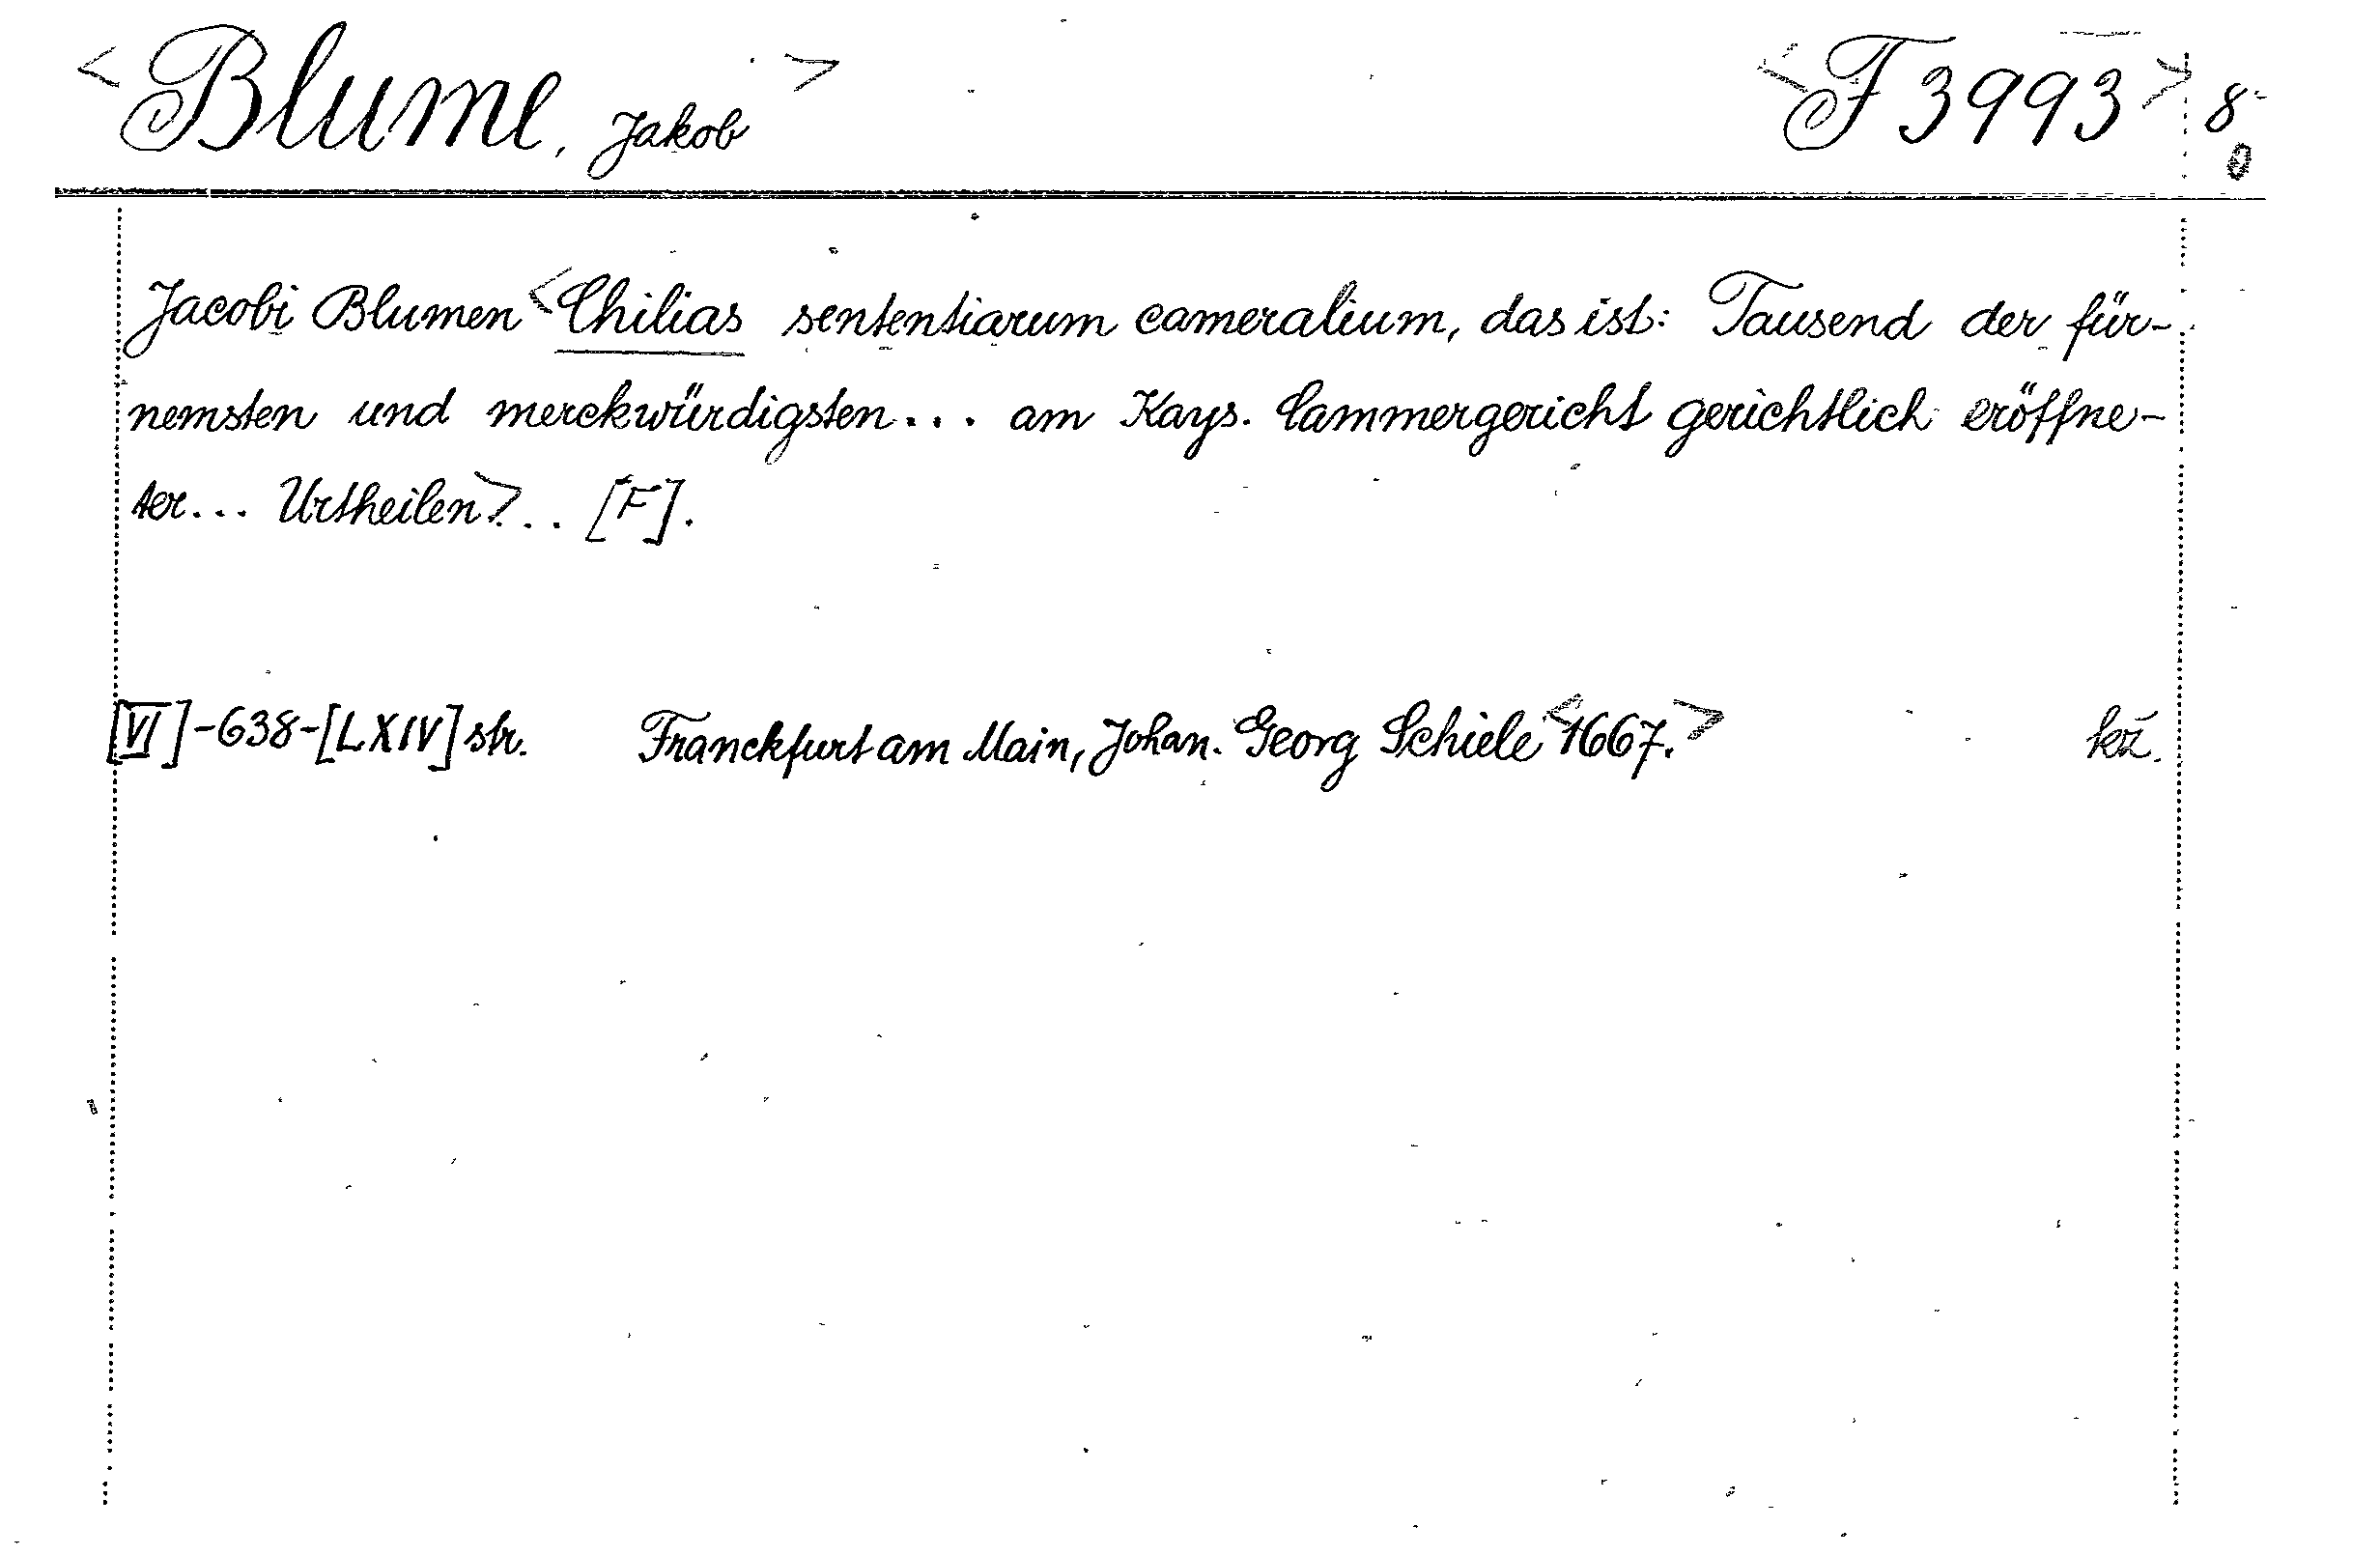 <Blume, Jakob> <F 3993> 8
0
Jacobi Blumen <Chilias sententiarum cameralium, das ist: Tausend der für-
nemsten und merckwürdigsten... am Kays. Cammergericht gerichtlich eröffne-
ter... Urtheilen>... [F].
[VI]-638-[LXIV] str. Franckfurt am Main, Johan. Georg Schiele <1667.> kž.